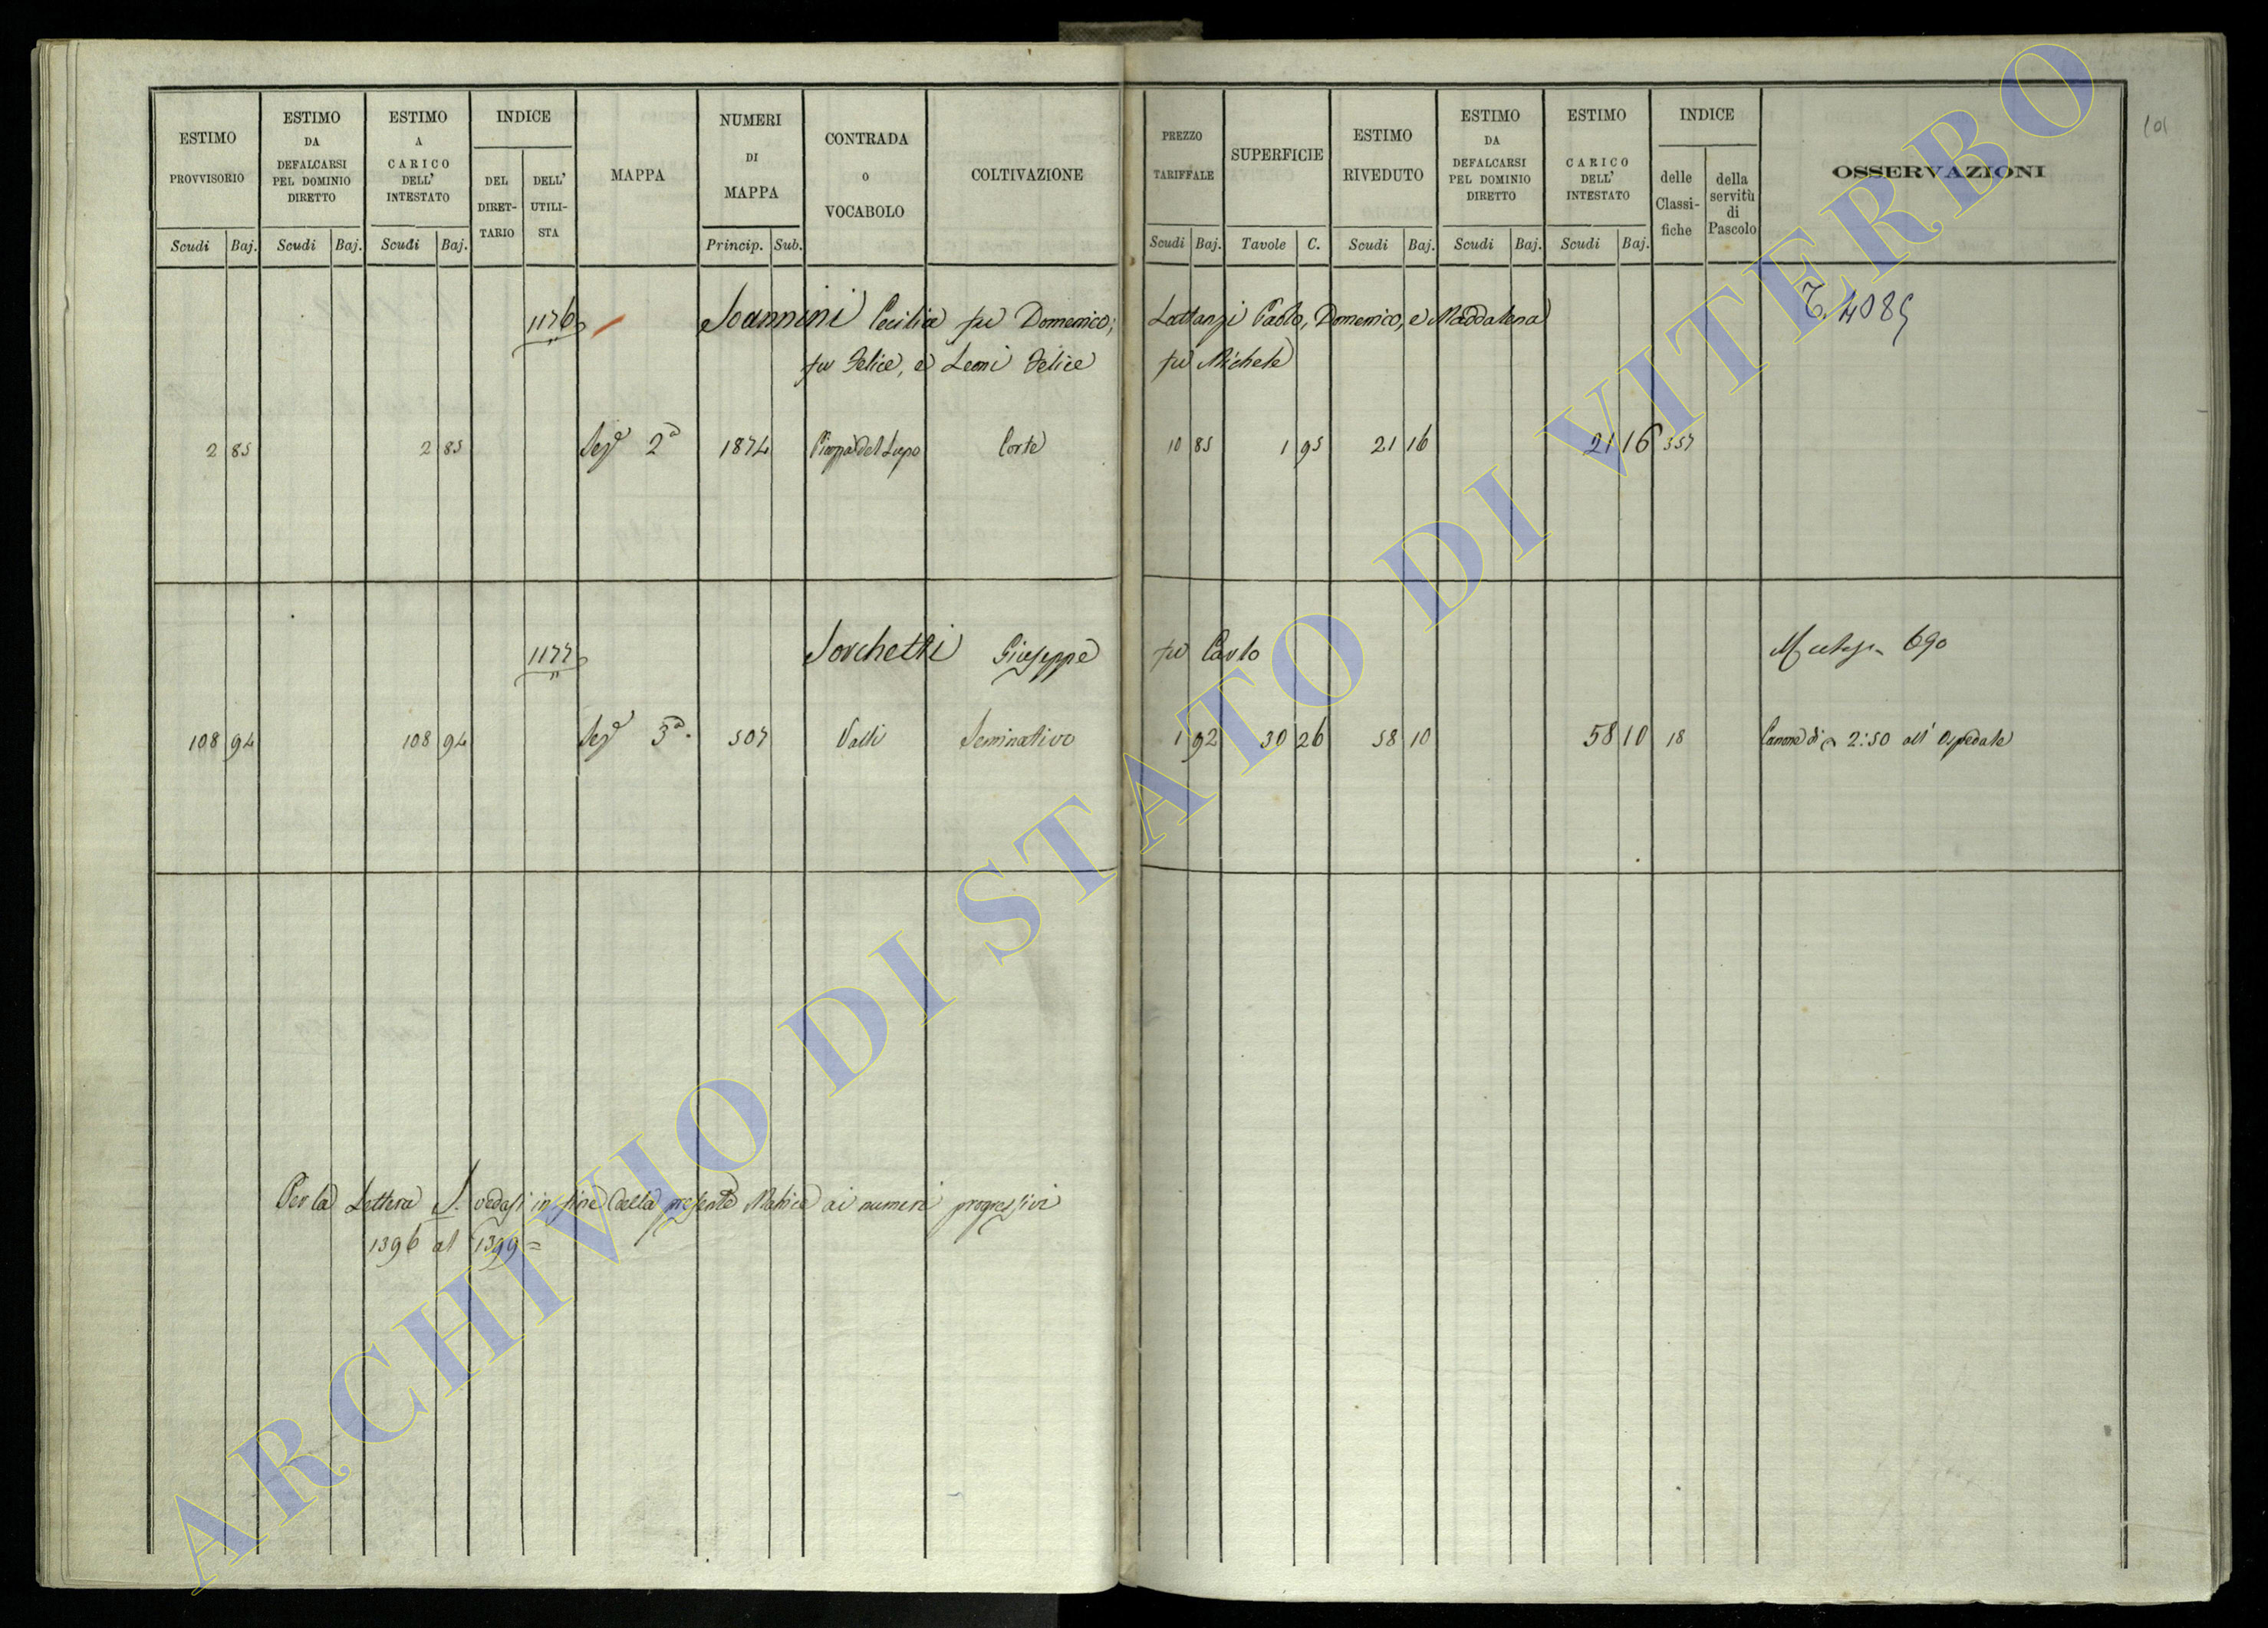 ESTIMO PROVVISORIO
Scudi Baj.
ESTIMO DA DEFALCARSI PEL DOMINIO DIRETTO
Scudi Baj.
ESTIMO A CARICO DELL' INTESTATO
Scudi Baj.
INDICE
DEL DIRET-TARIO
DELL' UTILI-STA
MAPPA
NUMERI DI MAPPA
Princip. Sub.
CONTRADA o VOCABOLO
COLTIVAZIONE
PREZZO TARIFFALE
Scudi Baj.
SUPERFICIE
Tavole C.
ESTIMO RIVEDUTO
Scudi Baj.
ESTIMO DA DEFALCARSI PEL DOMINIO DIRETTO
Scudi Baj.
ESTIMO A CARICO DELL' INTESTATO
Scudi Baj.
INDICE
delle Classi-fiche
della servitù di Pascolo
OSSERVAZIONI
101
1176 Soannini Cecilia fu Domenico; Lattanzi Paolo, Domenico, e Maddalena T. 4085
fu Felice, e Leoni Felice fu Michele
2 85 2 85 Sez.e 2a 1874 Piazza del Lupo Corte 10 85 1 95 21 16 21 16 357
1177 Sorchetti Giuseppe fu Carlo 690
108 94 108 94 Sez.e 3a 507 Valli Seminativo 1 92 30 26 58 10 58 10 18 Canone di 2:50 all' Ospedale
Per la Lettera S. vedasi in fine della presente Matrice ai numeri progressivi
1396 al 1399=
ARCHIVIO DI STATO DI VITERBO